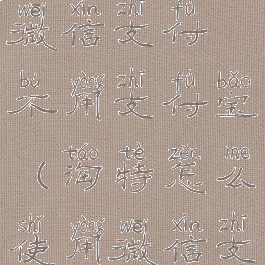 wēi xìn zhī fù
微信支付
bù yòng zhī fù bǎo
不用支付宝
táo tè zěn me
（淘特怎么
shǐ yòng wēi xìn zhī
使用微信支